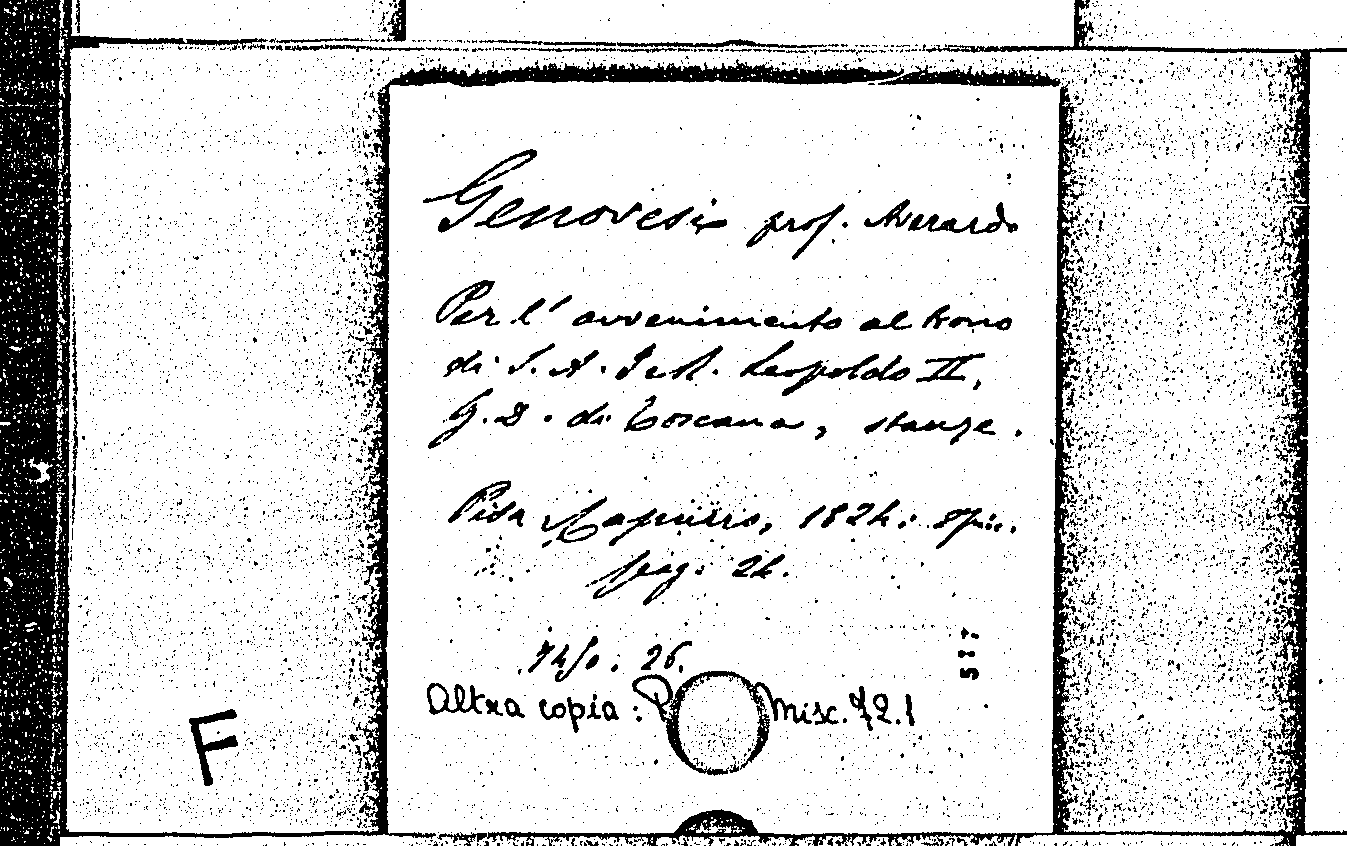 Genovesi prof. Averardo
Per l' avvenimento al trono
di S. A. I e R. Leopoldo II,
G. D. di Toscana, stanze.
Pisa Capurro, 1824: 8º
pag. 24.
74/0. 26.
Altra copia: Misc. 72.1
F